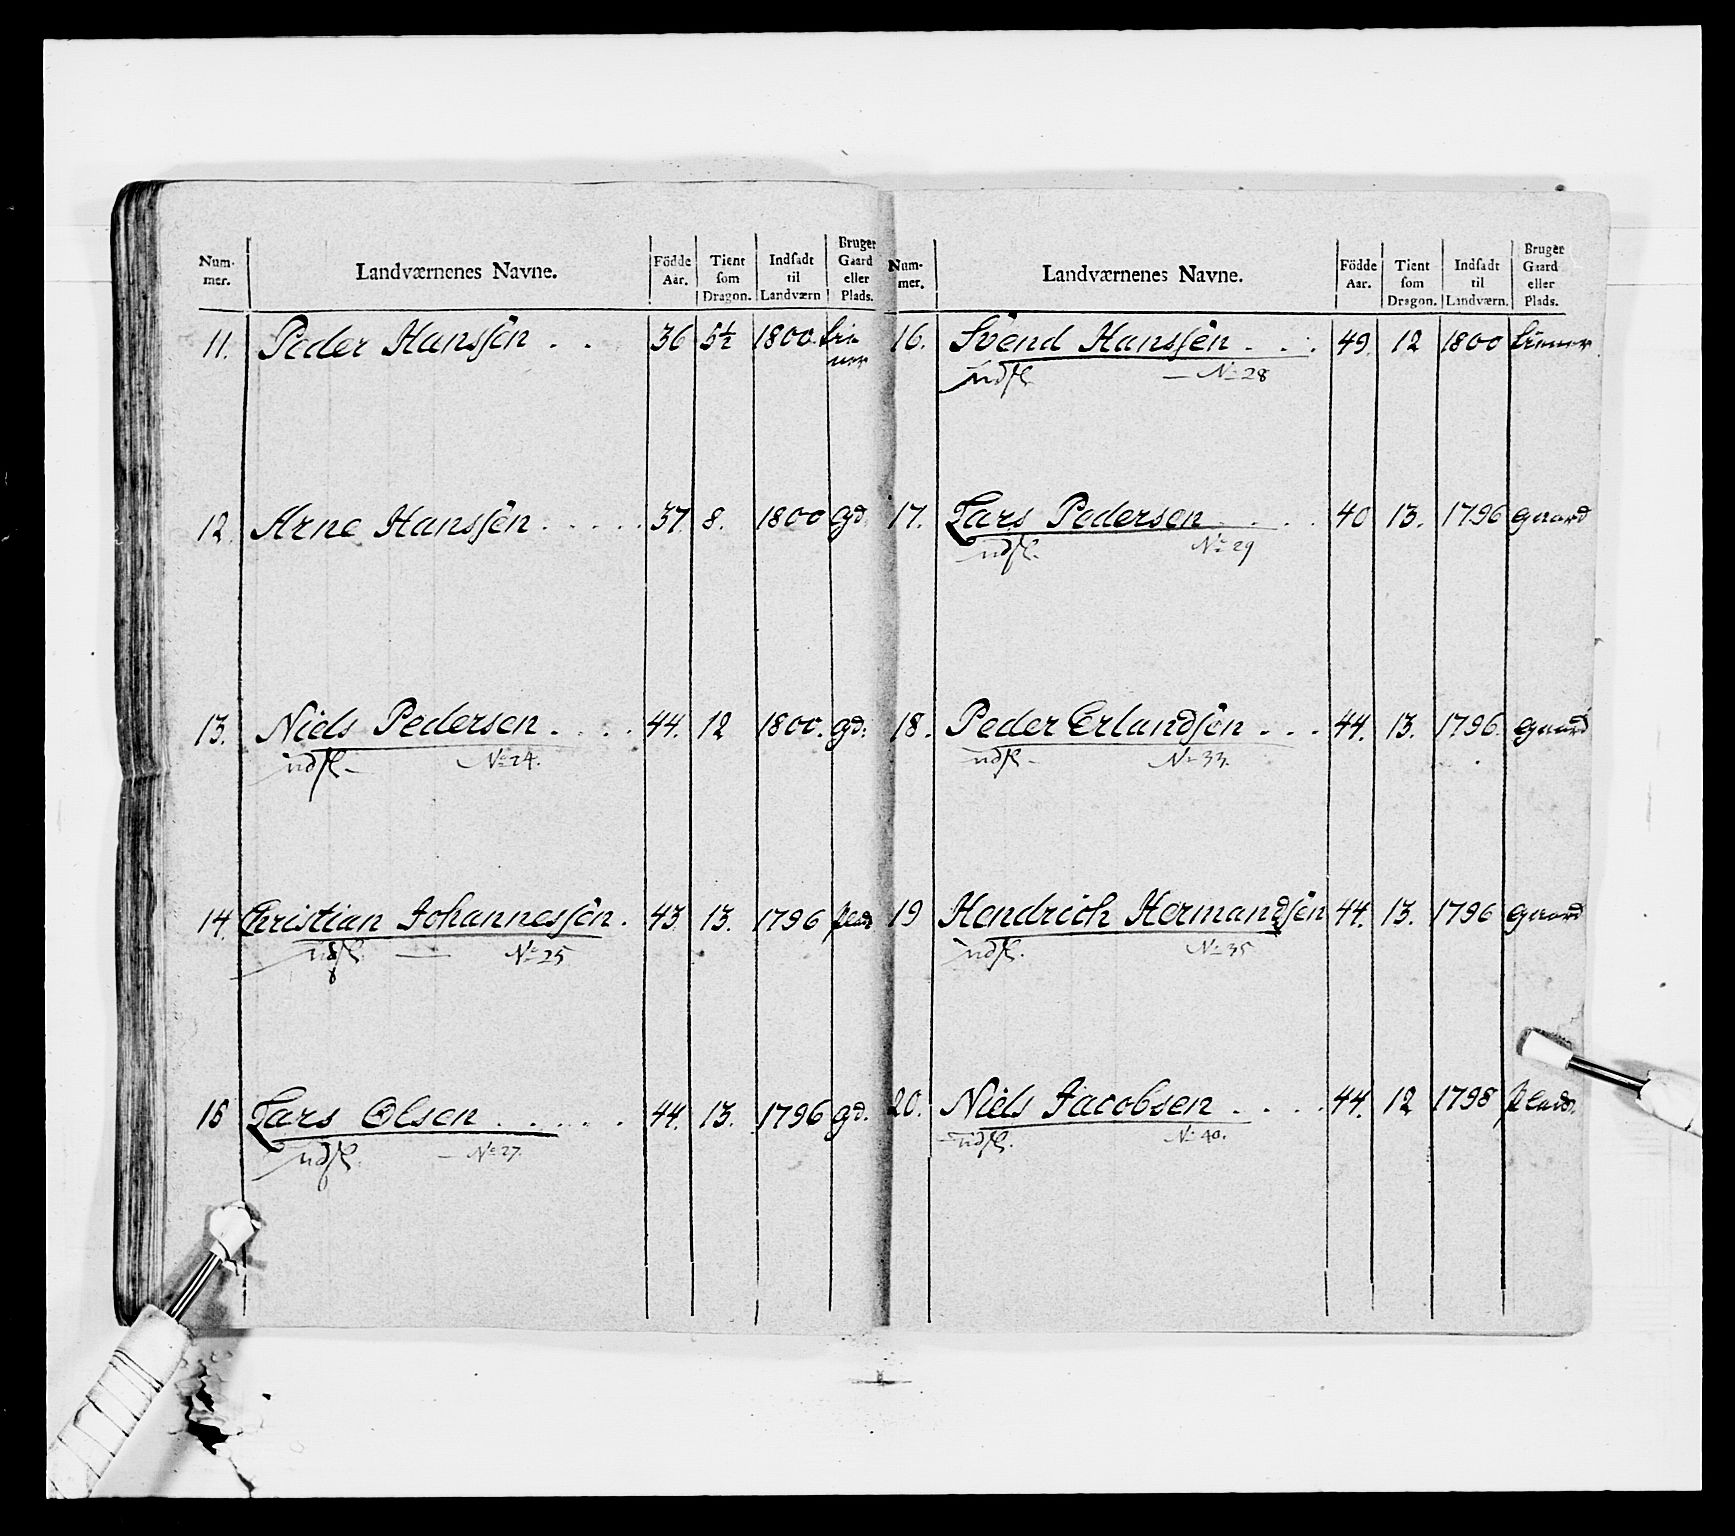 Num-mer. Landværnenes Navne. Födde Aar. Tient som Dragon. Indsadt til Landværn Bruger Gaard eller Plads.
11. Peder Hanssen . . 36 5½ 1800.
12. Arne Hanssen . . . . . 37 8. 1800 Gd.
13. Niels Pedersen . . . . 44. 12 1800. Gd:
udsl - No 24.
14. Christian Johannessen . 43 13. 1796 Plads
udsl. — No 25
15 Lars Olsen . . . . . 44. 13. 1796 Gd.
udsl. — No 27.
Num-mer. Landværnenes Navne. Födde Aar. Tient som Dragon. Indsadt til Landværn. Bruger Gaard eller Plads.
16. Svend Hanssen . . . 49. 12 1800
udsl — No 28
17. Lars Pedersen . . . 40 13. 1796 Gaard
udsl. No 29
18. Peder Erlandsen . . . 44. 13. 1796. Gaard
udsl - No 33.
19 Hendrich Hermandsen 44. 13. 1796 Gaard
udsl. No 35
20. Niels Jacobsen . . . . 44. 12 1798 Plads.
udsl. No 40.